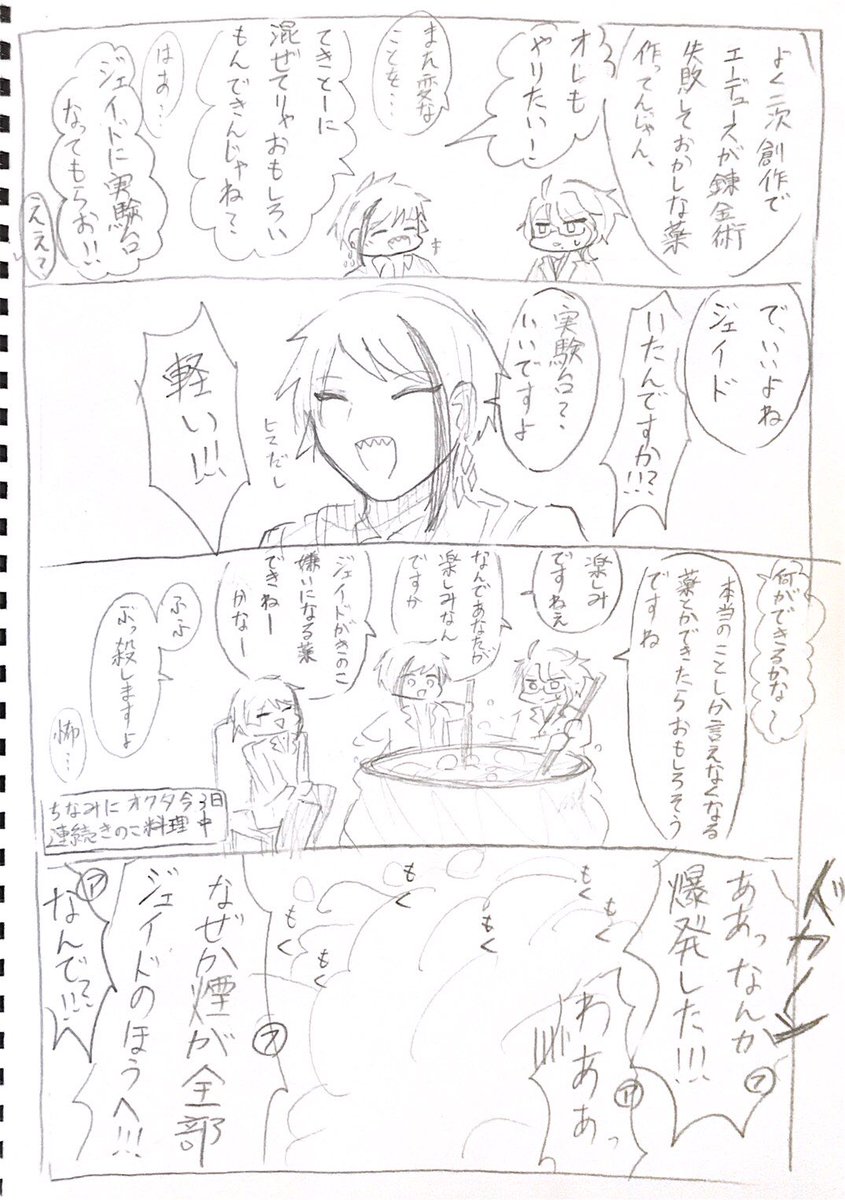 よく二次創作で
エーデュースが錬金術
失敗しておかしな薬
作ってんじゃん、
オレも
やりたい!
また変な
ことを…
てきとーに
混ぜてりゃおもしろい
もんできんじゃね?
はあ…
ジェイドに実験台
なってもらお!!
ええ?
で、いいよね
ジェイド
いたんですか!?!!
実験台?、
いいですよ
ヒマだし
軽い!!!
何ができるかな~
本当のことしか言えなくなる
薬とかできたらおもしろそう
ですね
楽しみ
ですねえ
なんであなたが
楽しみなん
ですか
ジェイドがきのこ
嫌いになる薬
できねー
かなー
ふふ
ぶっ殺しますよ
怖…
ちなみにオクタ今3日
連続きのこ料理中
ドカーン
ああっなんか
爆発した!!!
フ
わああっ
ア
もく
もく
もく
もく
もく
なぜか煙が全部
ジェイドのほうへ!!!
フ
ア
なんで?!!